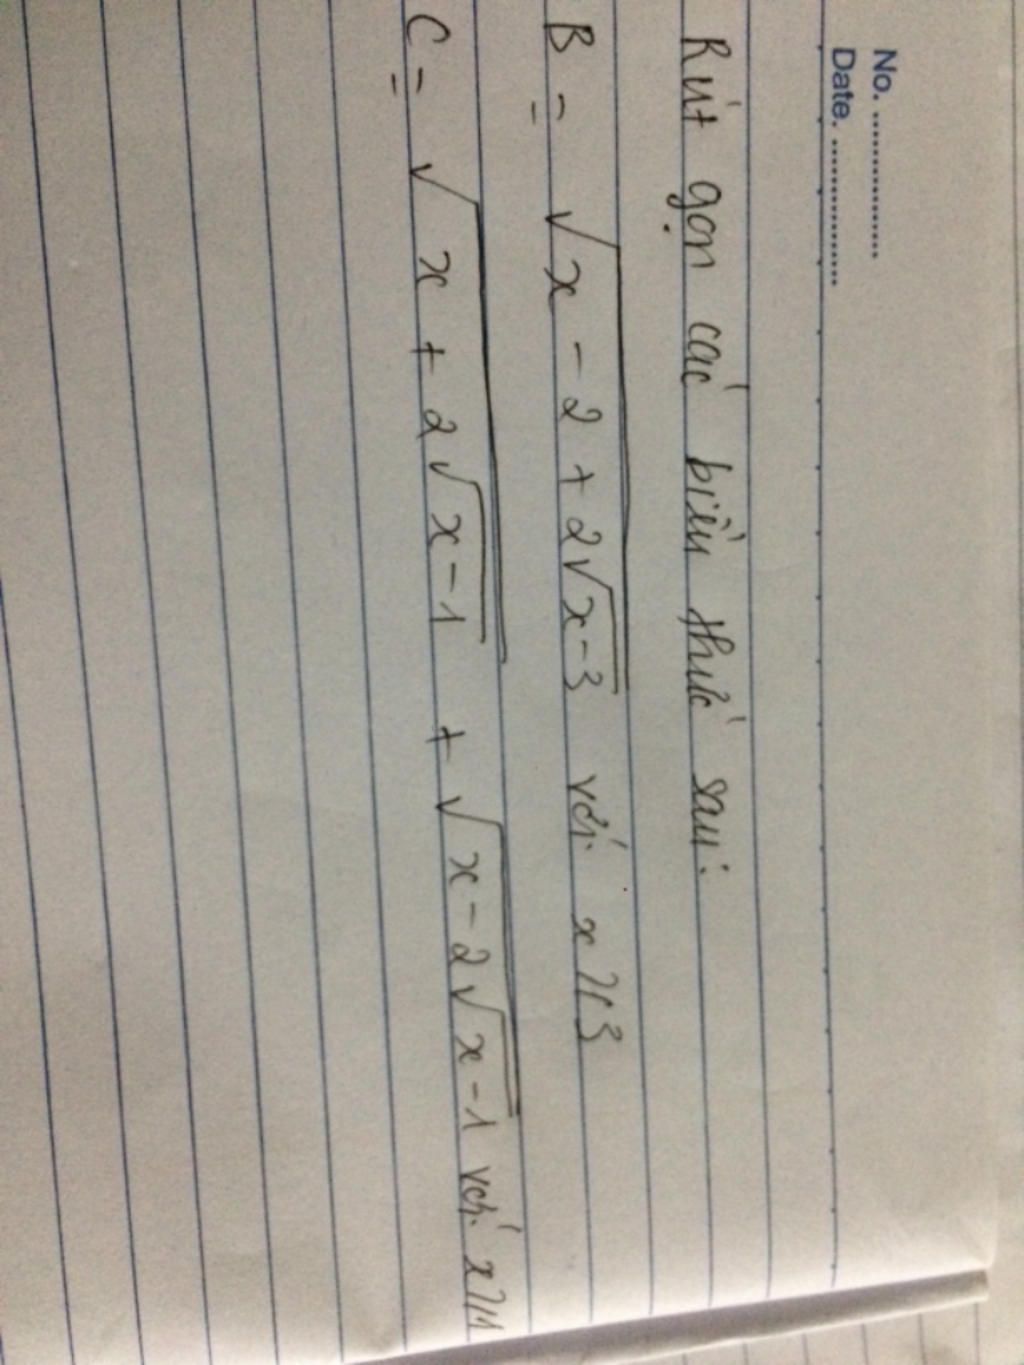 No. ..................
Date. ..................
Rút gọn các biểu thức sau:
B = √(x - 2 + 2√(x-3)) với x ≥ 3
C = √(x + 2√(x-1)) + √(x - 2√(x-1)) với x ≥ 1